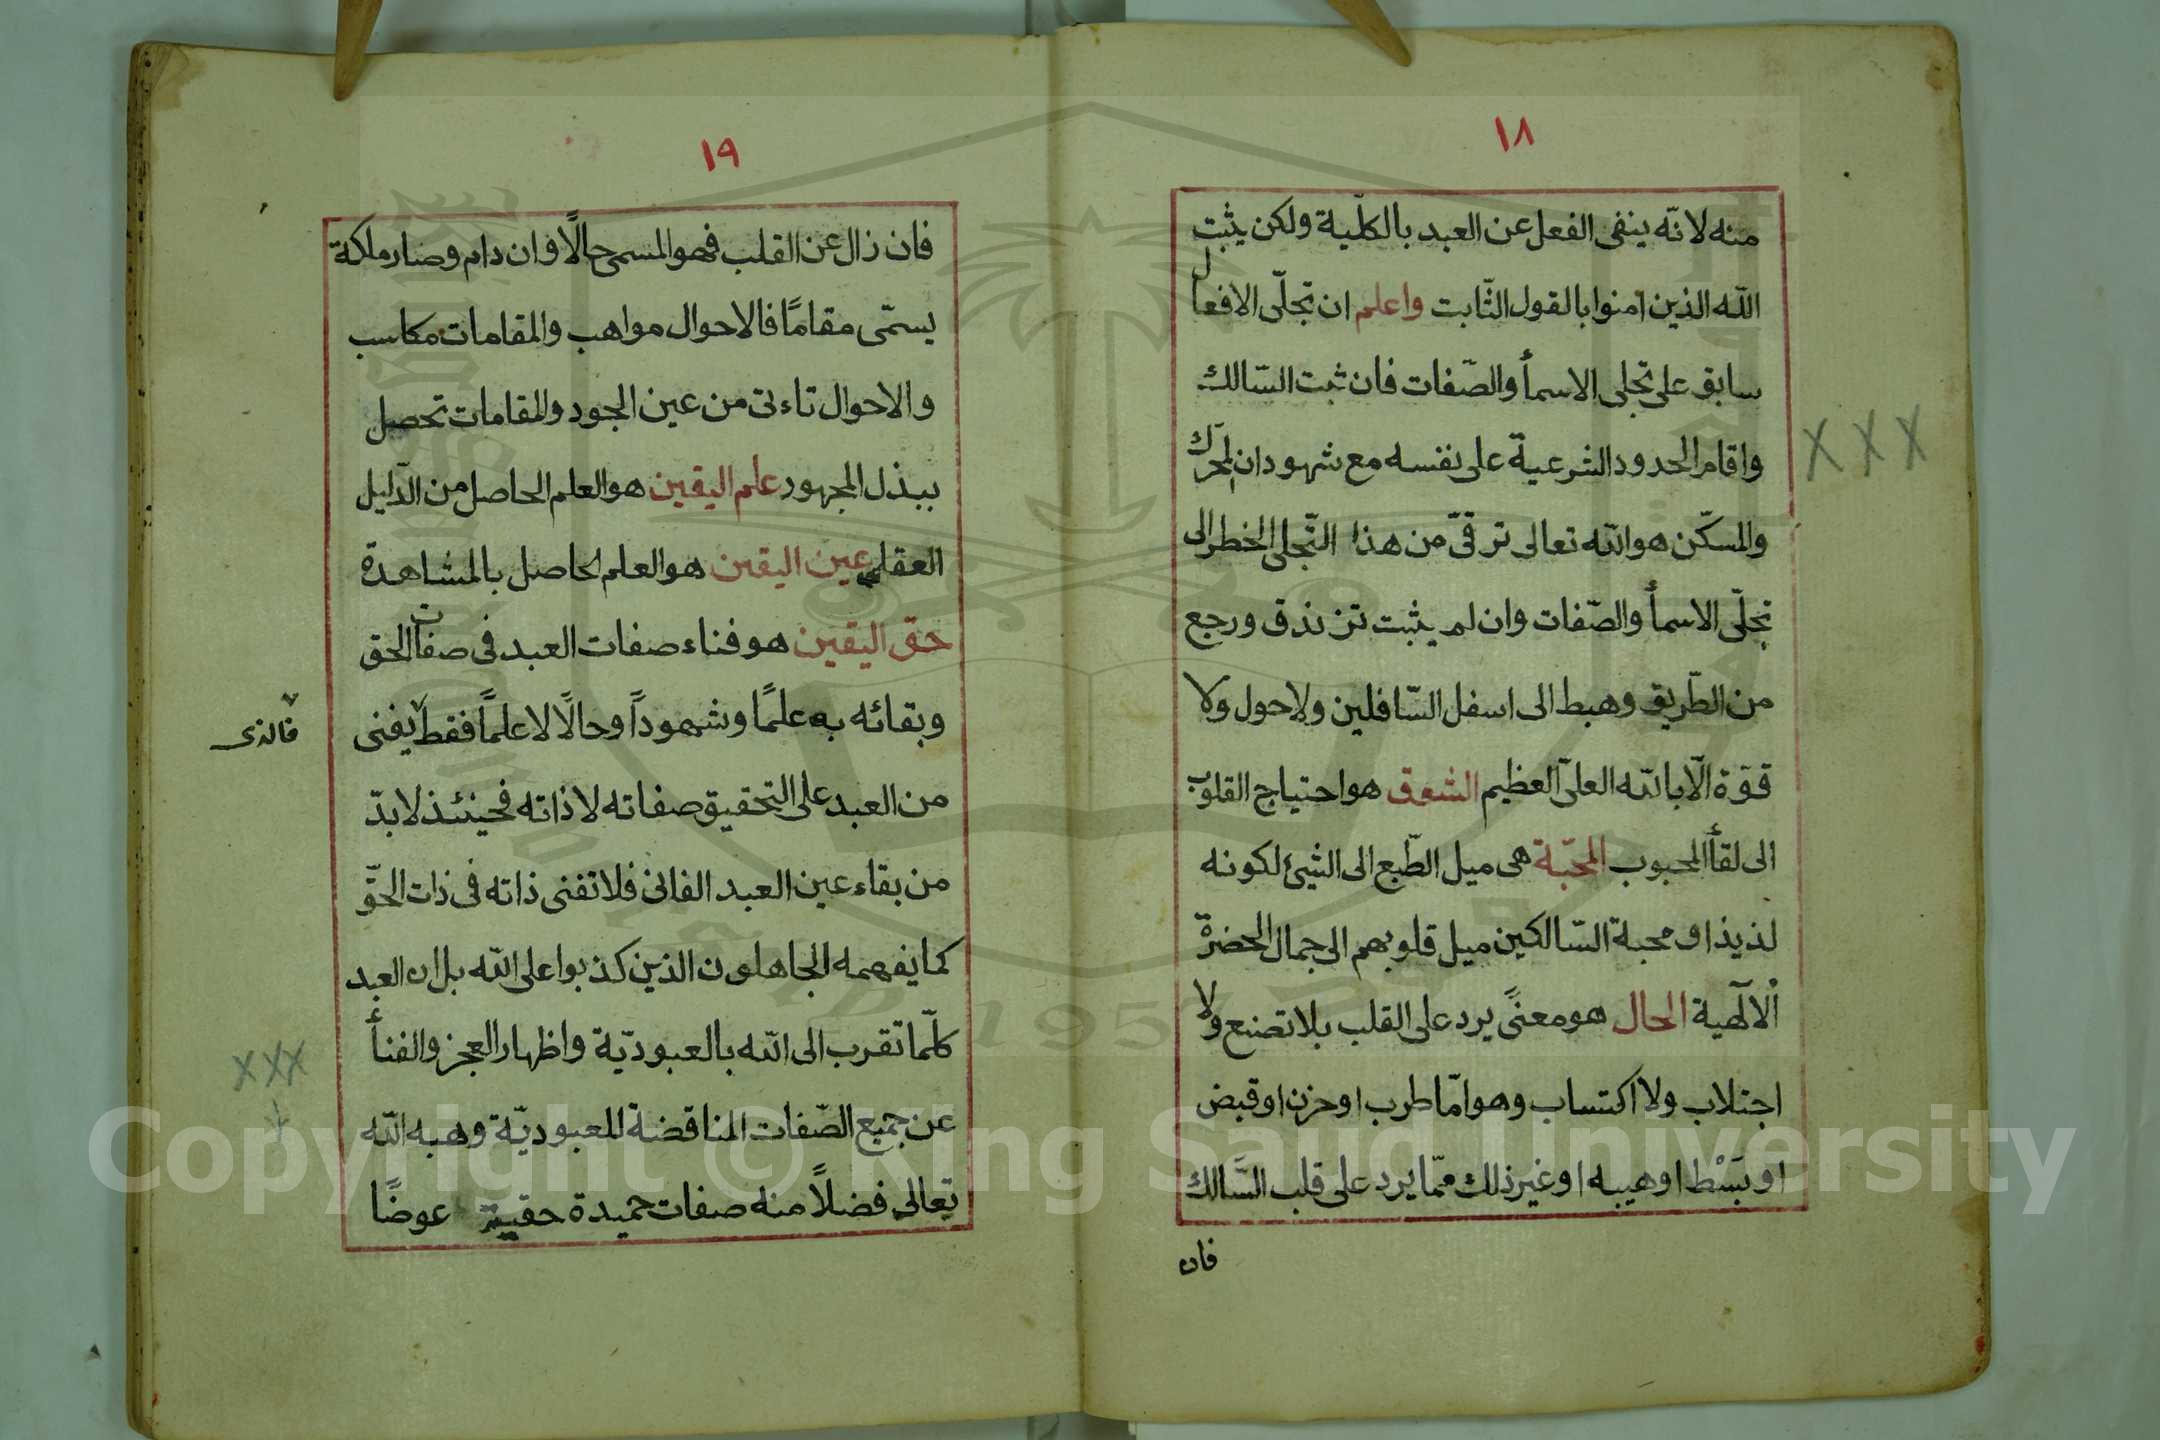 ١٨
منه لانّه ينفى الفعل عن العبد بالكلّية ولكن يثبت
اللّه الذين امنوا بالقول الثّابت واعلم ان تجلّى الافعال
سابق على تجلى الاسمأ والصّفات فان ثبت السّالك
واقام الحدود الشرعية على نفسه مع شهود ان المحرّك
والمسكّن هو اللّه تعالى ترقىّ من هذا التّجلى الخطر الى
تجلّى الاسمأ والصّفات وان لم يثبت تزندق ورجع
من الطّريق وهبط الى اسفل السّافلين ولاحول ولا
قوّة الّا باللّه العلىّ العظيم الشوق هو احتياج القلوب
الى لقأ المحبوب المحبّة هى ميل الطّبع الى الشيئ لكونه
لذيذا و محبة السّالكين ميل قلوبهم الى جمال الحضرة
الالٓهية الحال هو معنىً يرد على القلب بلا تصنع ولا
اجتلاب ولا اكتساب وهو امّا طرب او حزن او قبض
او بَسْط او هيبه او غير ذلك ممّا يرد على قلب السَّالك
فان
١٩
فان زال عن القلب فهو المسمى حالًا وان دام وصار ملكة
يسمّى مقامًا فالاحوال مواهب والمقامات مكاسب
والاحوال تاءتى من عين الجود والمقامات تحصل
ببذل المجهود علم اليقين هو العلم الحاصل من الدّليل
العقلى عين اليقين هو العلم الحاصل بالمشاهدة
حق اليقين هو فناء صفات العبد فى صفات الحق
وبقائه به علمًا وشهوداً وحالًا لا علماً فقط يفنى
فالذى
من العبد على التحقيق صفاته لا ذاته فحينئذ لا بدّ
من بقاء عين العبد الفانى فلا تفنى ذاته فى ذات الحقّ
كما يفهمه الجاهلون الذين كذبوا على اللّه بل ان العبد
كلّما تقرب الى اللّه بالعبوديّة واظهار العجز والفنأ
عن جميع الصّفات المناقضة للعبوديّة وهبه اللّه
تعالى فضلاً منه صفات حميدة حقيقية عوضًا
Copyright © King Saud University